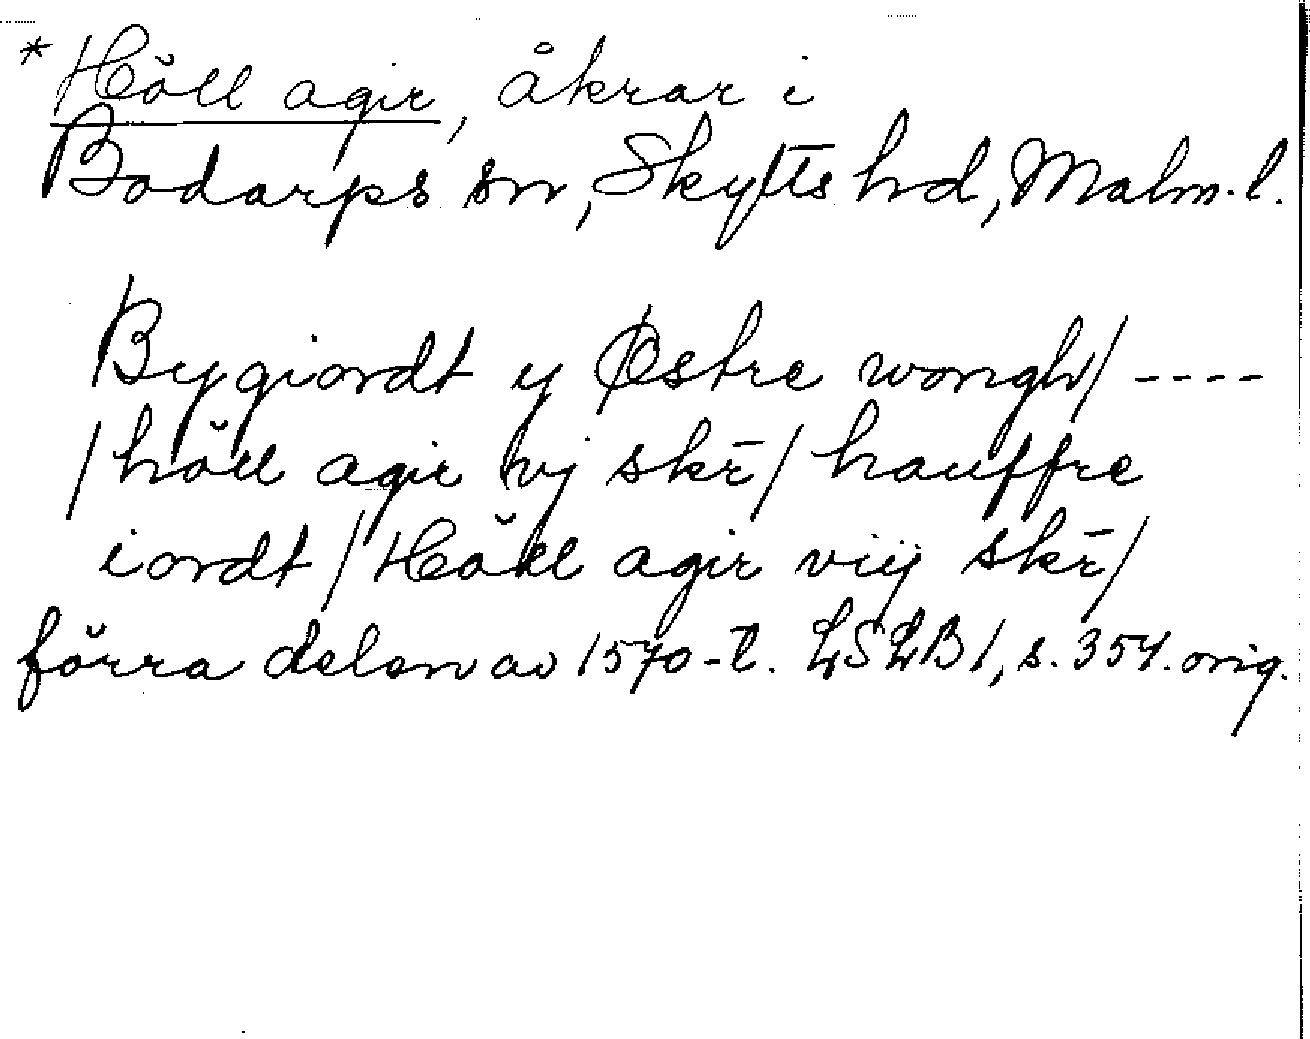 *Höll agir, åkrar i
Bodarps sn, Skytts hd, Malm. l.
Bygiordt y Østre wongh/ ----
/höll agir vj skr̄/ hauffre
iordt/Höll agir viij skr̄/
förra delen av 1570-t. LSLB1, s. 354. orig.